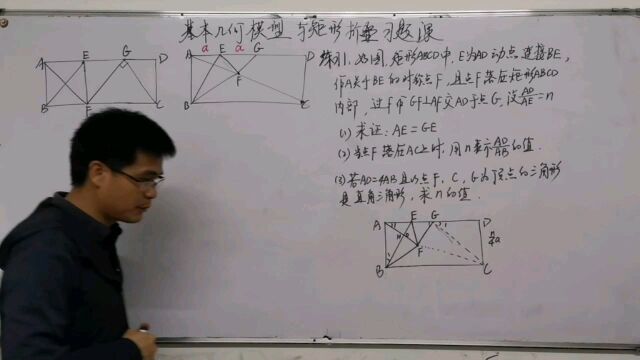 基本几何模型与矩形折叠习题课
A E G D
B F C
A a E a G D
F
B C
练习1、如图,矩形ABCD中,E为AD动点,连接BE,
作A关于BE的对称点F,且点F落在矩形ABCD
内部,过F作GF⊥AF交AD于点G,设AD/AE=n
(1) 求证:AE=GE
(2) 当点F落在AC上时,用n表示AD/AB的值.
(3) 若AD=4AB且以点F,C,G为顶点的三角形
是直角三角形,求n的值.
A E G D
H F
B C